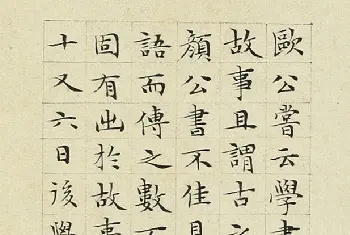 歐公嘗云學書
故事且謂古
顏公書不佳
語而傳之數
固有出於故事
十又六日後學